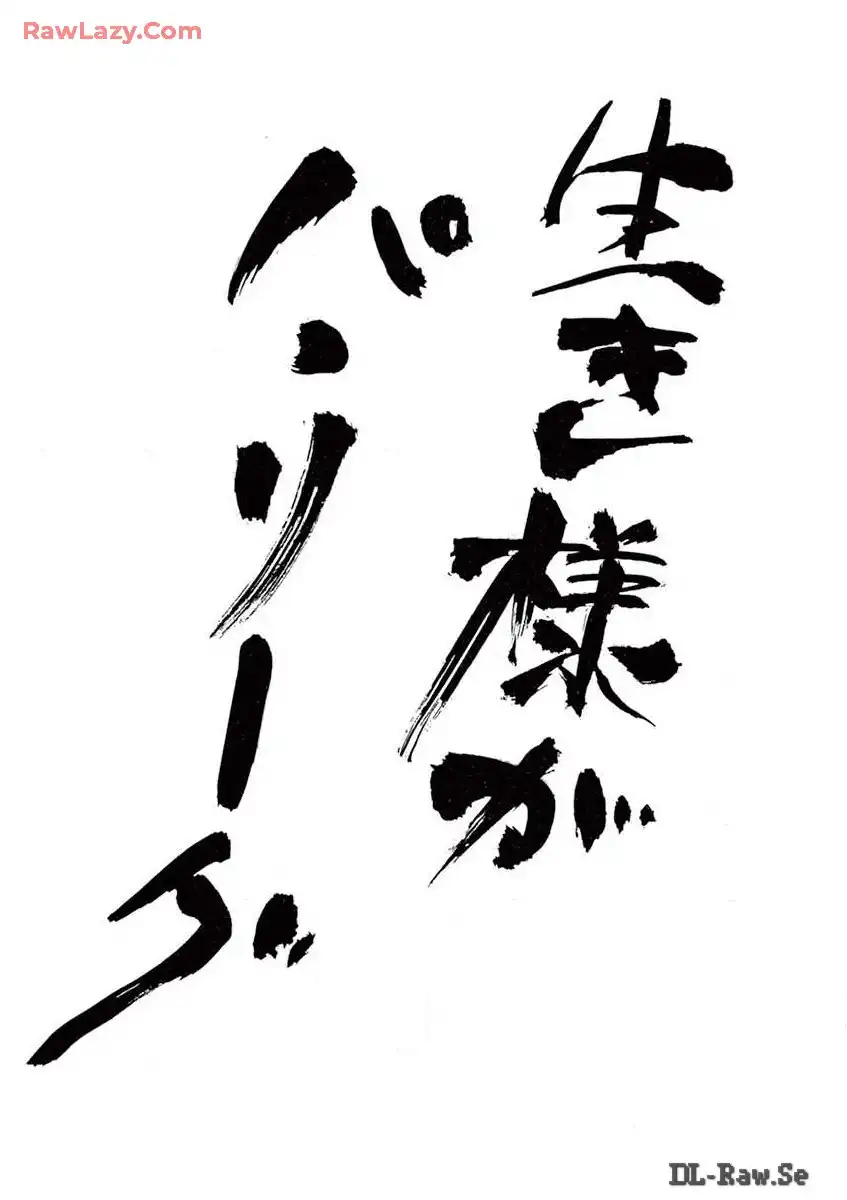 RawLazy.Com
生き様が
パ・リーグ
DL-Raw.Se